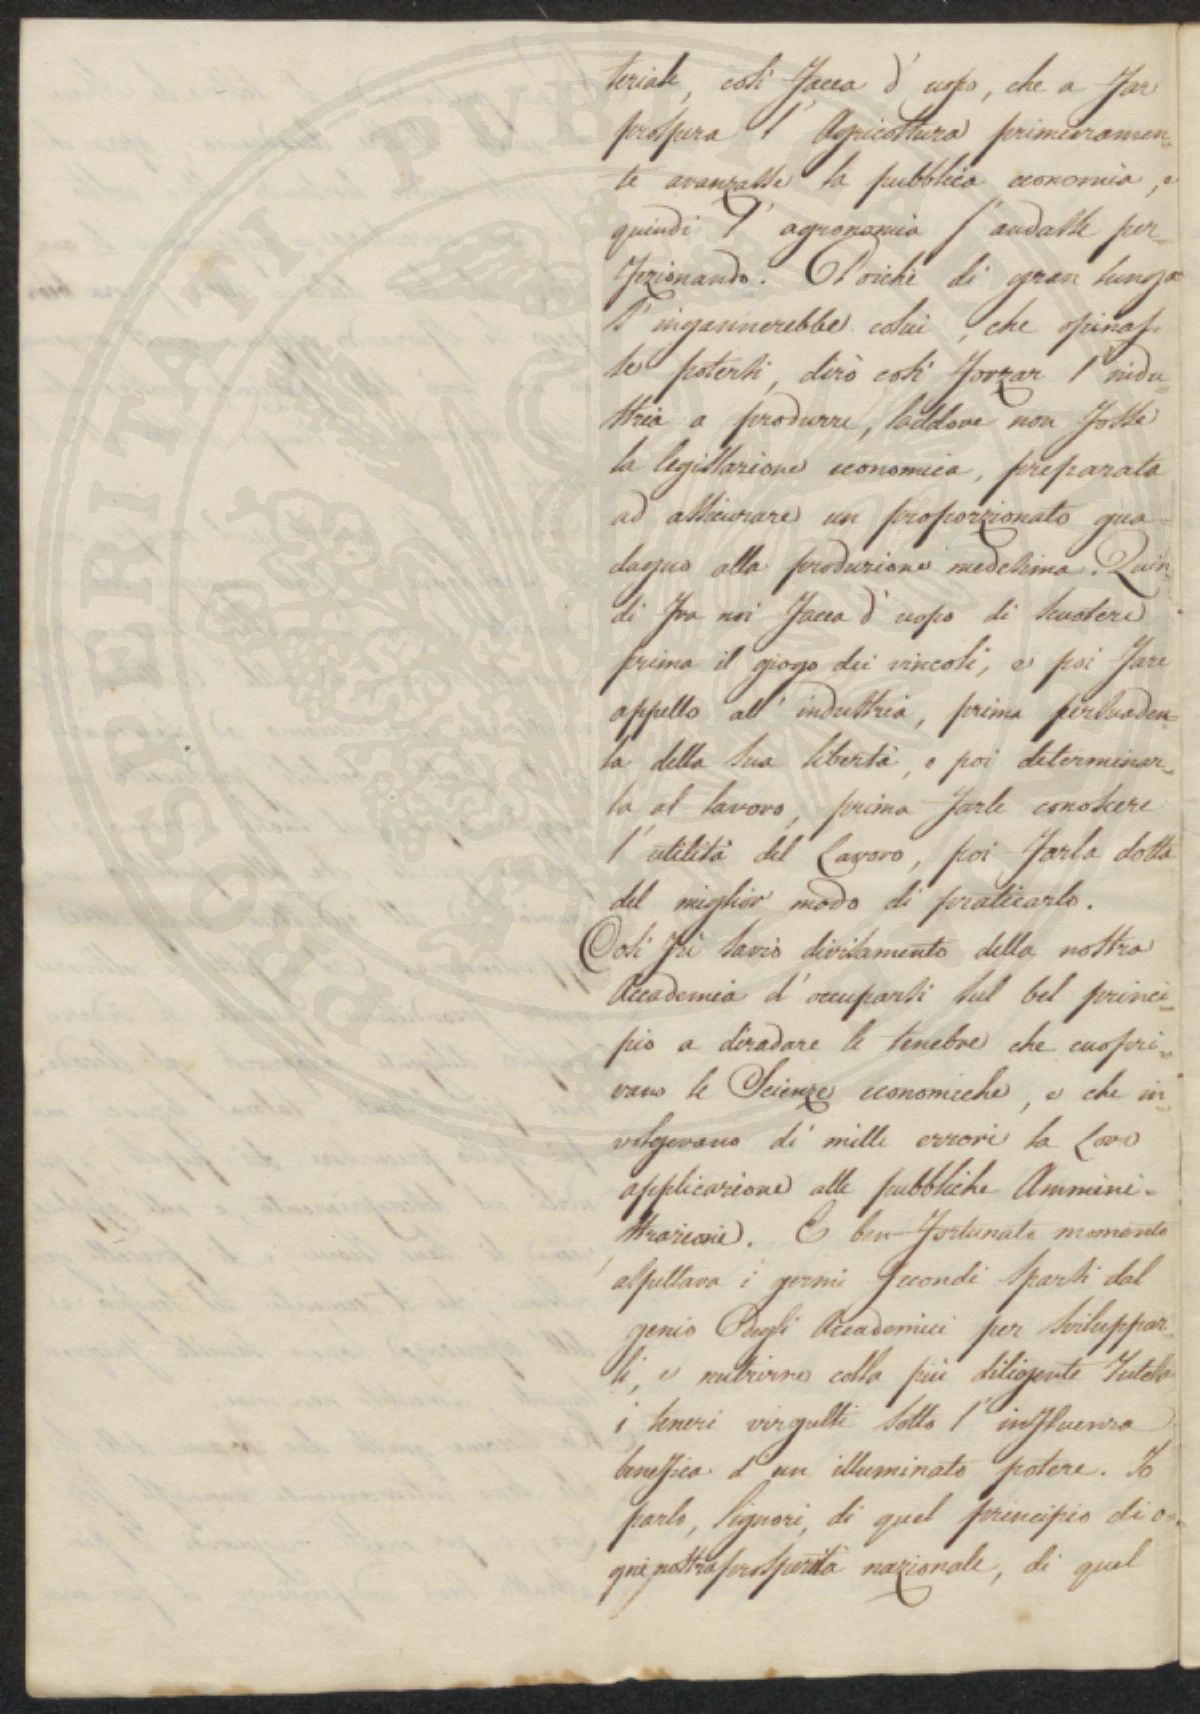 teriale, così facea d'uopo, che a far
prospera l'Agricoltura primieramen=
te avanzasse la pubblica economia, e
quindi l'agronomia s'andasse per=
fezionando. Poichè di gran lunga
s'ingannerebbe colui, che opinas=
se potersi, dirò così forzar l'indu=
stria a produrre, laddove non fosse
la legislazione economica, preparata
ad assicurare un proporzionato gua=
dagno alla produzione medesima. Quin=
di fra noi facea d'uopo di scuotere
prima il giogo dei vincoli, e poi fare
appello all'industria, prima persuader=
la della sua libertà, e poi determinar=
la al lavoro, prima farle conoscere
l'utilità del Lavoro, poi farla dotta
del miglior modo di praticarlo.
Così fù savio divisamento della nostra
Accademia d'occuparsi sul bel princi=
pio a diradare le tenebre che cuopri=
vano le Scienze economiche, e che in=
volgevano di mille errori la Loro
applicazione alle pubbliche Ammini=
strazioni. E ben fortunato momento
aspettava i germi fecondi sparsi dal
genio degli Accademici per svilupper
si, e nutrirne colla più diligente tutela
i teneri virgulti sotto l'influenza
benefica d'un illuminato potere. Io
parlo, Signori, di quel principio di o=
gni nostra prosperità nazionale, di quel
PROSPERITATI PUBLI